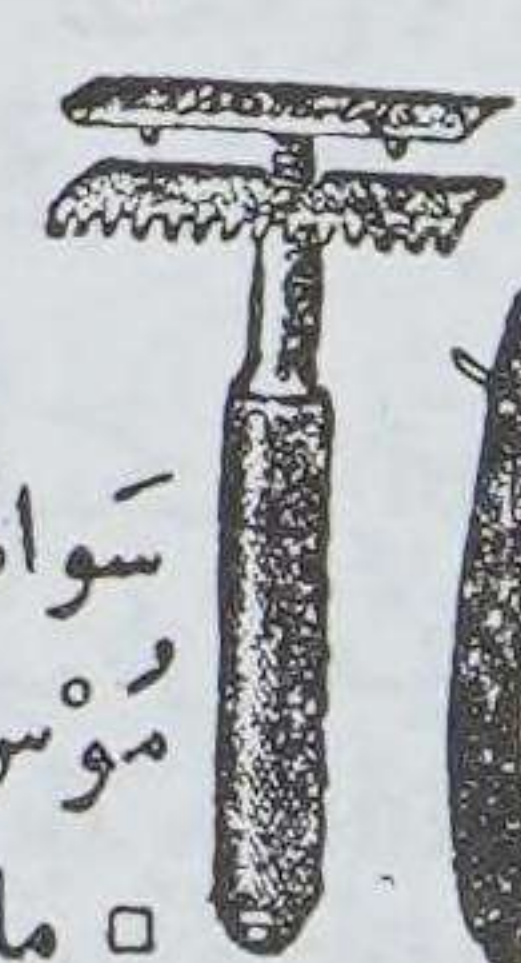 سَوا
مُوْس
□ ما